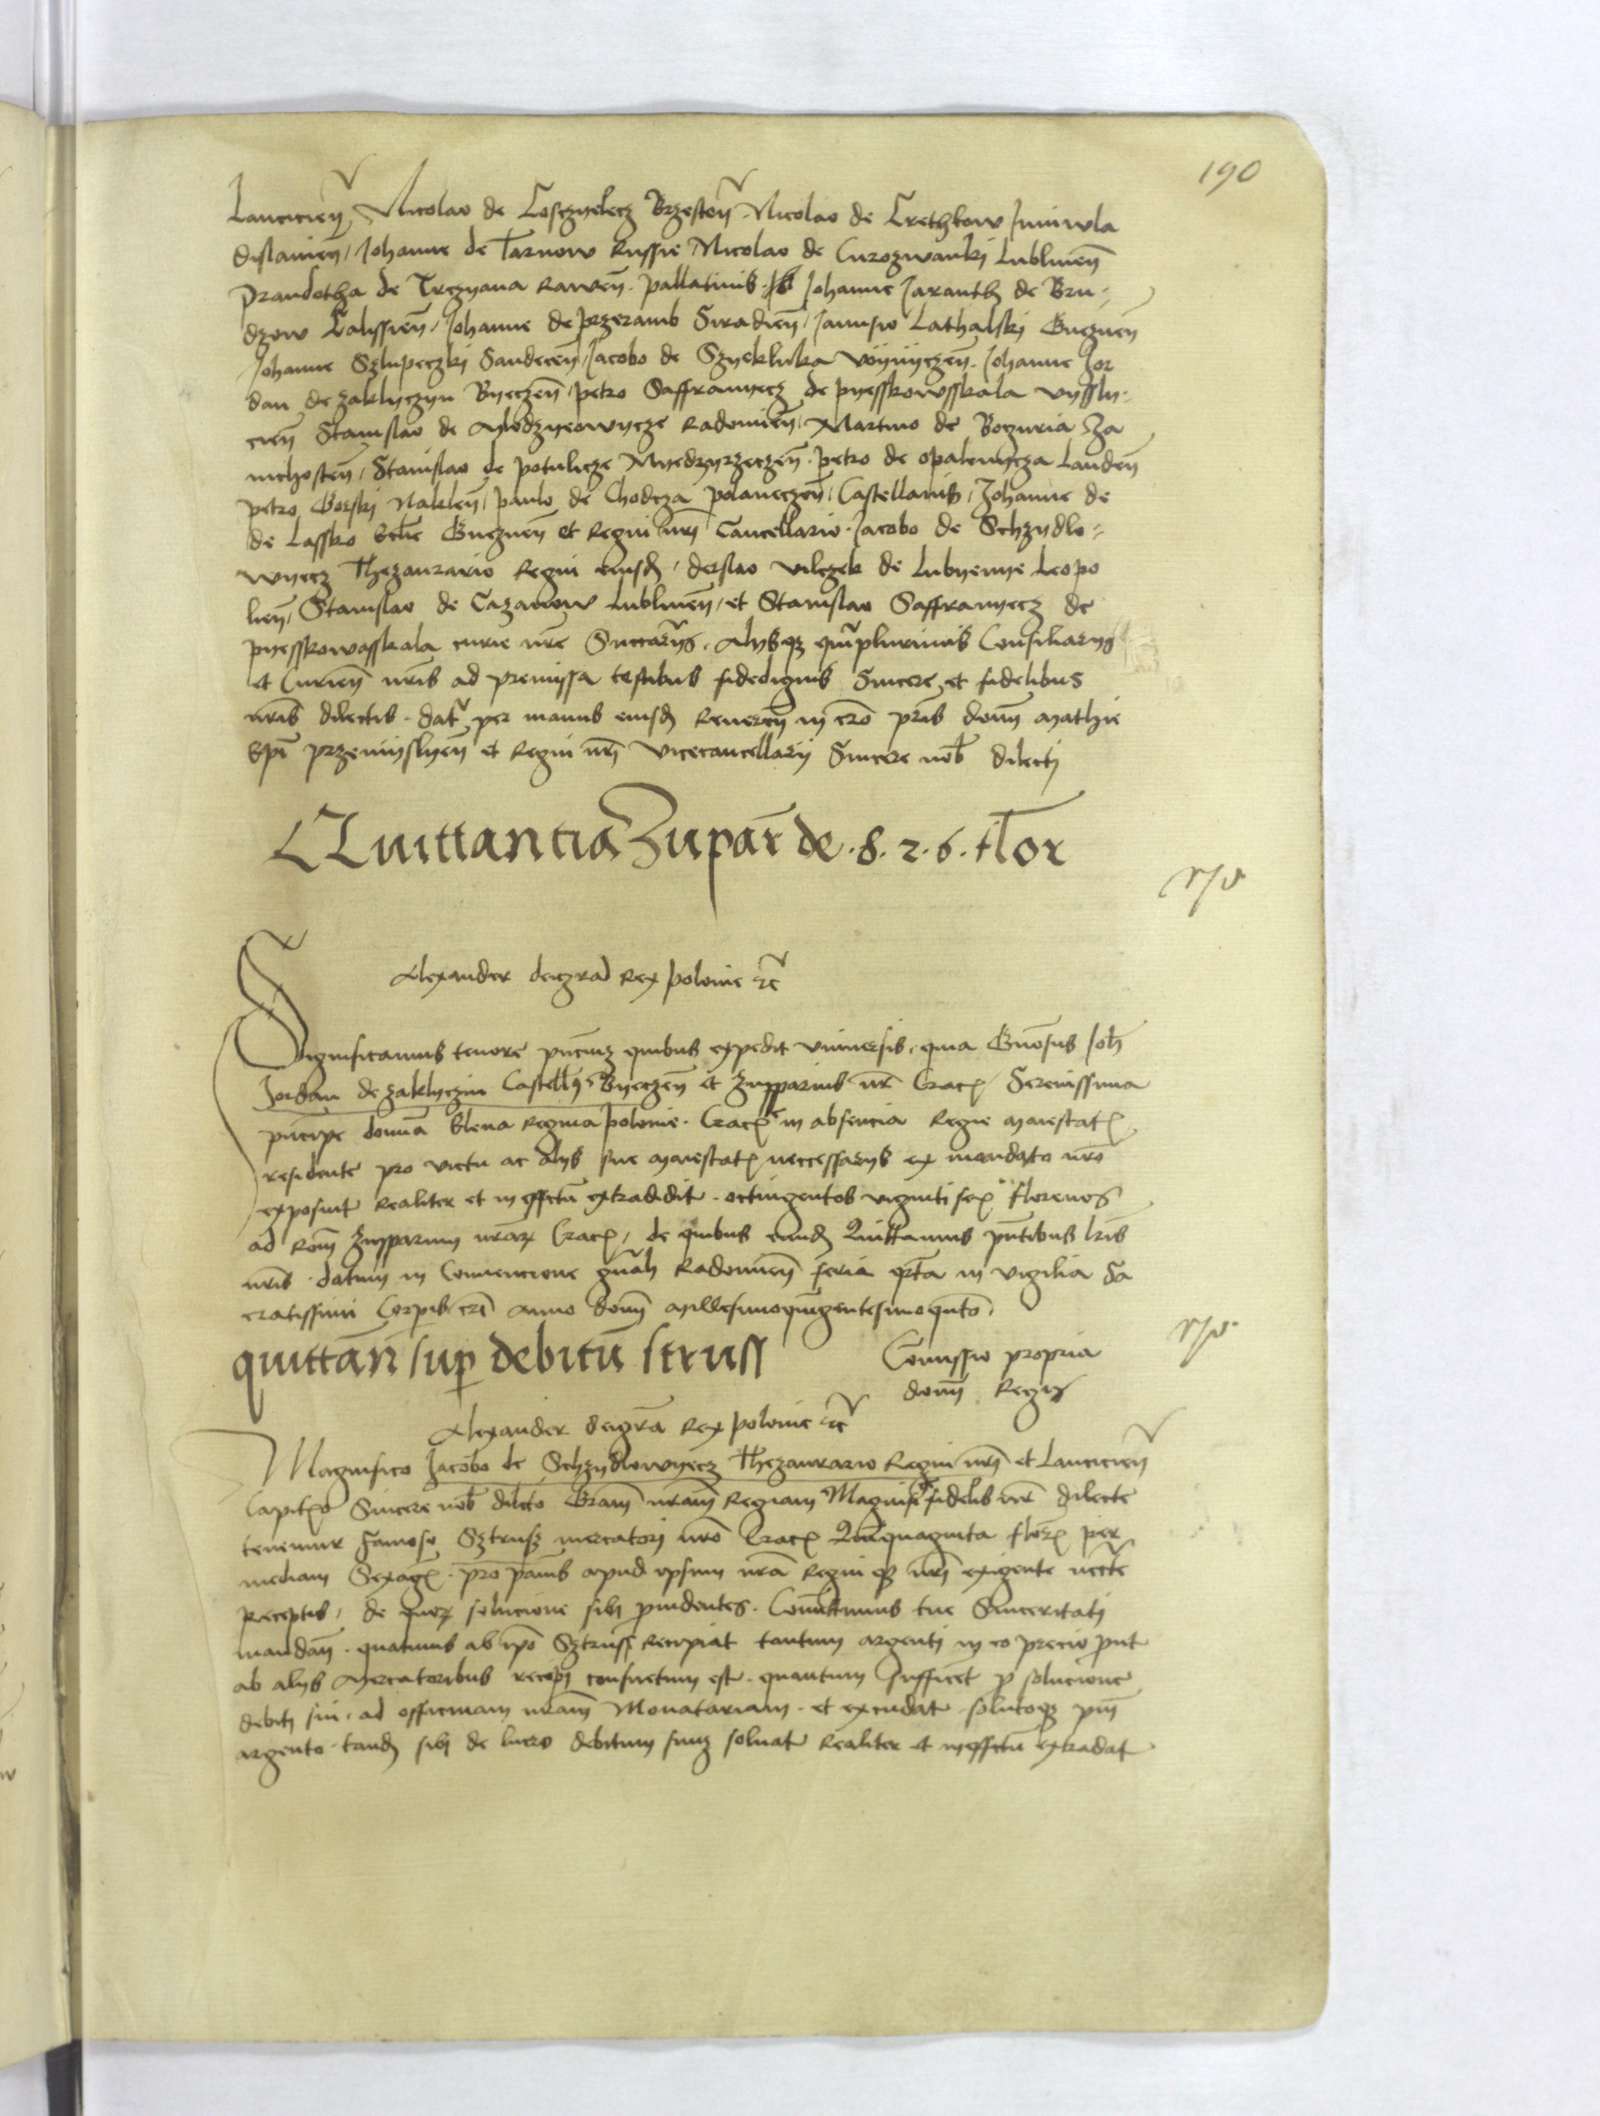 190
Lancicien̄ Nicolao de Coschyelecz Brzesten̄ Nicolao de Crethkow Juniwla
dislauien̄, Johanne de Tarnow Russie Nicolao de Curozwanki Lublinen̄
Prandotha de Trczyana Rawen̄. pallatinis. Johanne Jaranth de Bru⸗
dzow Calissien̄, Johanne de przeramb Siradien̄, Janusio Lathalski Gneznen̄
Johanne Szlupeczki Sandecen̄, Jacobo de Szyekluka Woynyczen̄. Johanne Jor
dan de zaklyczyn Byeczen̄, petro Saffranyecz de pyesskowsskala vysly⸗
cien̄ Stanislao de Mlodzyeowycze Radomien̄, Martino de Boguria Za
wichosten̄, Stanislao de potulicze Myedzyrzeczen̄. petro de opalenycza Landen̄
petro Gorski Naklen̄, paulo de Chodcza polaneczen̄, Castellanis, Johanne de
de Lassko eccl̄ie Gneznen̄ et Regni nr̄i Cancellario. Jacobo de Schzydlo⸗
wyecz Thezaurario Regni eiusd̄, derslao vilczek de Lubyenye Leopo
lien̄, Stanislao de Cazanow Lublinen̄, et Stanislao Saffranyecz de
pyesskowasskala curie nr̄e Succar̄ys. Alysqʒ qūplurimis Consiliarys
et Curien̄ nr̄is ad premissa testibus fidedignis Sincere et fidelibus
nr̄is dilectis. dat̄ per manus eiusd̄ Reueren̄ in cr̄o pr̄is domī Mathie
Ep̄i przemislyen̄ et Regni nr̄i Vicecancellarij Sincere nob̄ dilecti
Quittantia Zupar̄ de .8.2.6. flor
Alexander dei gra͞ Rex polonie ꝛc̄
Significamus tenore pn̄cium quibus expedit vniuersis, quia Gn̄osus Joh̄
Jordan de zaklyczin Castell̄s Byeczen̄ et Zupparius nr̄ Crac̄ Serenissima
principe domīna Elena Regina polonie. Crac̄ in absencia Regie Maiestat̄
residente pro victu ac alys sue Maiestat̄ neccessarys ex mandato nr̄o
exposuit Realiter et in effectū extradidit. octingentos viginti sex florenos
ad Rōm Zupparum nr̄arꝝ Crac̄, de quibus eund̄ Quittamus pn̄tibus lr̄is
nr̄is. datum in Conuencione gn̄ali Radomien̄ feria qr̄ta in vigilia Sa
cratissimi Corpis cr̄i Anno domī Millesimoquingentesimoqnto.
quittan̄ sup̱ debitū struss
Comissio propria
domī Regis
Alexander dei gr̄a Rex polonie ꝛc̄
Magnifico Jacobo de Schzydlowyecz Thezaurario Regni nr̄i et Lancicien̄
Capit̄o Sincere nob̄ dilcto Gram̄ nr̄am Regiam Magnifice fidelis nr̄ dilecte
tenemur famoso Sztrusz mercatori nr̄o Crac̄ Quinquaginta flor̄ per
mediam Sexaḡ. pro pānis apud ipsum nr̄a Regniqʒ nr̄i exigente necc̄te
Receptis, de quorꝝ solucione sibi prouidentes. Comittimus tue Sinceritati
mandan̄. quatenus ab ip̄o Sztruss Recipiat tantum argenti in eo precio prut
ab alys Mercatoribus recipi consuetum est. quantum sufficet p̱ solucione
debiti sui, ad officinam nr̄am Monatariam. et excudat. solutoqʒ pr̄i
argento. tand̄ sibi de lucro debitum suum soluat Realiter et in effectū extradat